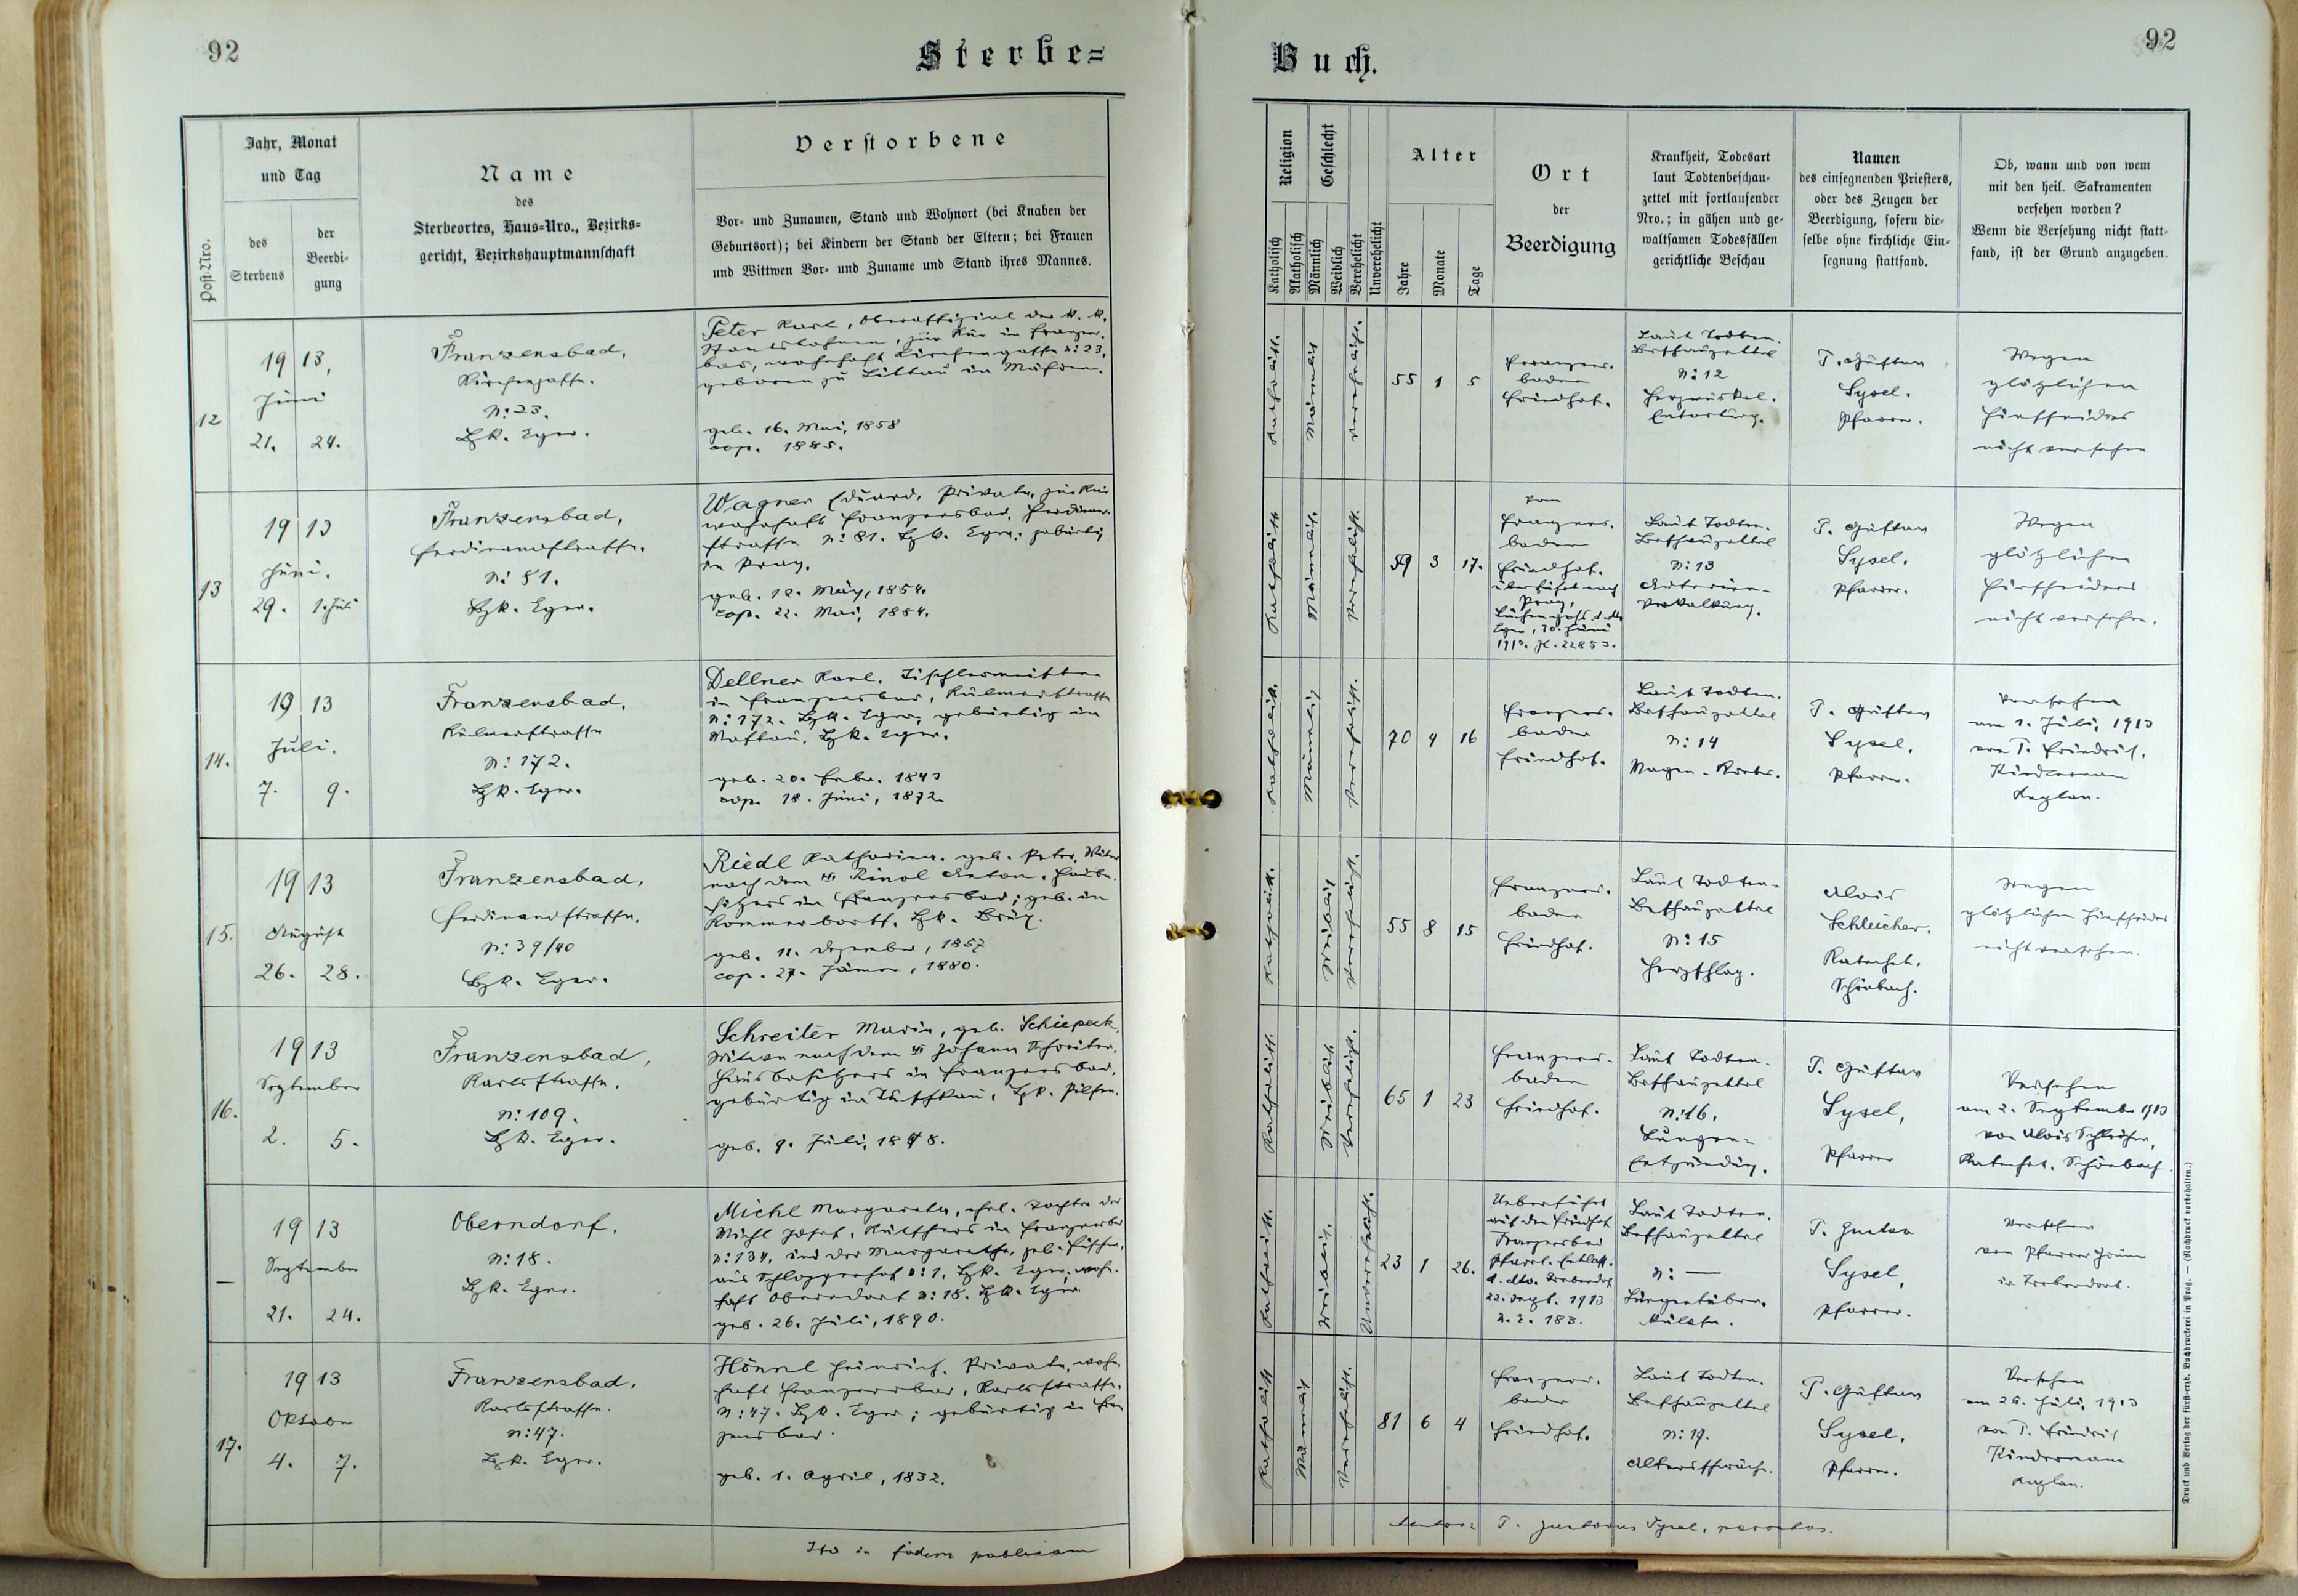 92
Sterbe=
Post-Nro.
Jahr, Monat
und Tag
des
Sterbens
der
Beerdi-
gung
Name
des
Sterbeortes, Haus-Nro., Bezirks-
gericht, Bezirkshauptmannschaft
Verstorbene
Vor- und Zunamen, Stand und Wohnort (bei Knaben der
Geburtsort); bei Kindern der Stand der Eltern; bei Frauen
und Wittwen Vor- und Zuname und Stand ihres Mannes.
12
1913,
Juni
21. 24.
Franzensbad,
Kirchengasse.
N: 23.
Bzk. Eger.
Peter Karl, Oberoffizial der k. k.
Staatsbahnen, zur Kur in Franzens-
bad, wohnhaft Kirchengasse N: 23,
geboren zu Littau in Mähren.
geb. 16. Mai, 1858
cop. 1885.
13
1913
Juni.
29. 1. Juli
Franzensbad,
Ferdinandstrasse.
N: 81.
Bzk. Eger.
Wagner Eduard, Private, zur Kur
wohnhaft Franzensbad, Ferdinand-
strasse N: 81. Bzk. Eger; gebürtig
in Prag.
geb. 12. März, 1854.
cop. 22. Mai, 1884.
14.
1913
Juli.
7. 9.
Franzensbad,
Kulmerstrasse
N: 172.
Bzk. Eger.
Dellner Karl, Tischlermeister
in Franzensbad, Kulmerstrasse
N: 172. Bzk. Eger; gebürtig in
Bzk. Eger.
geb. 20. Febr. 1843
cop. 18. Juni, 1872.
15.
1913
August
26. 28.
Franzensbad,
Ferdinandstrasse.
N: 39/40
Bzk. Eger.
Riedl Katharina. geb. Peter, Witwe
nach dem Anton, Hausbe-
sitzers in Franzensbad; geb. in
Bzk. Brüx.
geb. 11. Dezember, 1857
cop. 27. Jänner, 1880.
16.
1913
September
2. 5.
Franzensbad,
Karlsstrasse.
N: 109.
Bzk. Eger.
Schreiter Maria, geb. Schiepeck,
Witwe nach dem Johann Schreiter,
Hausbesitzers in Franzensbad,
gebürtig in Tuschkau, Bzk. Pilsen.
geb. 9. Juli, 1848.
—
1913
September
21. 24.
Oberndorf.
N: 18.
Bzk. Eger.
Michl Margareta, ehel. Tochter des
Michl Josef, Kutschers in Franzensbad
N: 134, und der Margaretha, geb. Fischer,
aus N: 1, Bzk. Eger, wohn-
haft Oberndorf N: 18. Bzk. Eger
geb. 26. Juli, 1890.
17.
1913
Oktober
4. 7.
Franzensbad,
Karlsstrasse.
N: 47.
Bzk. Eger.
Hönnl Heinrich. Private, wohn-
haft Franzensbad, Karlsstrasse.
N: 47. Bzk. Eger; gebürtig in Fran-
zensbad.
geb. 1. April, 1832.
Ita in fidem publicam
Buch.
92
Religion
Katholisch
Akatholisch
Geschlecht
Männlich
Weiblich
Verehelicht
Unverehelicht
Alter
Jahre
Monate
Tage
Ort
der
Beerdigung
Krankheit, Todesart
laut Todtenbeschau-
zettel mit fortlaufender
Nro.; in gähen und ge-
waltsamen Todesfällen
gerichtliche Beschau
Namen
des einsegnenden Priesters,
oder des Zeugen der
Beerdigung, sofern die-
selbe ohne kirchliche Ein-
segnung stattfand.
Ob, wann und von wem
mit den heil. Sakramenten
versehen worden?
Wenn die Versehung nicht statt-
fand, ist der Grund anzugeben.
Katholisch.
Männlich
Verehelicht.
55 1 5
Franzens-
bader
Friedhof.
Laut Todten-
Beschauzettel
N: 12
Herzmuskel-
Entartung.
P. Gustav
Sysel.
Pfarrer.
Wegen
plötzlichen
Hinscheidens
nicht versehen
Katholisch
Männlich.
Verehelicht.
59 3 17.
vom
Franzens-
bader
Friedhof.
überführt nach
Prag,
Eger, 30. Juni
1913. Z. 22853.
Laut Todten-
Beschauzettel
N: 13
Arterien-
verkalkung.
P. Gustav
Sysel.
Pfarrer.
Wegen
plötzlichen
Hinscheidens
nicht versehen.
Katholisch.
Männlich
Verehelicht.
70 4 16
Franzens-
bader
Friedhof.
Laut Todten-
Beschauzettel
N: 14
Magen-Krebs.
P. Gustav
Sysel.
Pfarrer.
Versehen
am 1. Juli, 1913
von P. Friedrich
Kindermann
Kaplan.
Katholisch.
Weiblich
Verehelicht.
55 8 15
Franzens-
bader
Friedhof.
Laut Todten-
Beschauzettel
N: 15
Herzschlag.
Alois
Schleicher.
Katechet.
Schönbach.
Wegen
plötzlichen Hinscheidens
nicht versehen.
Katholisch.
Weiblich
Verehelicht.
65 1 23
Franzens-
bader
Friedhof.
Laut Todten-
Beschauzettel
N: 16.
Lungen-
Entzündung.
P. Gustav
Sysel,
Pfarrer
Versehen
am 2. September 1913
von Alois Schleicher,
Katechet. Schönbach.
Katholisch.
Weiblich.
Unverehelicht.
23 1 26.
Ueberführt
auf den Friedhof
Franzensbad
Pfarrl. Entlass.
d. dto. Trebendorf
22. Sept. 1913
N. E. 183.
Laut Todten-
Beschauzettel
N: —
Lungentuber-
kulose.
P. Gustav
Sysel,
Pfarrer.
Versehen
von Pfarrer
in Trebendorf.
Katholisch
Männlich
Verehelicht.
81 6 4
Franzens-
bader
Friedhof.
Laut Todten-
Beschauzettel
N: 17.
Altersschwäche.
P. Gustav
Sysel.
Pfarrer.
Versehen
am 26. Juli, 1913
von P. Friedrich
Kindermann
Kaplan.
P. Gustavus Sysel, parochus.
Druck und Verlag der fürst-erzb. Buchdruckerei in Prag. — (Nachdruck vorbehalten.)